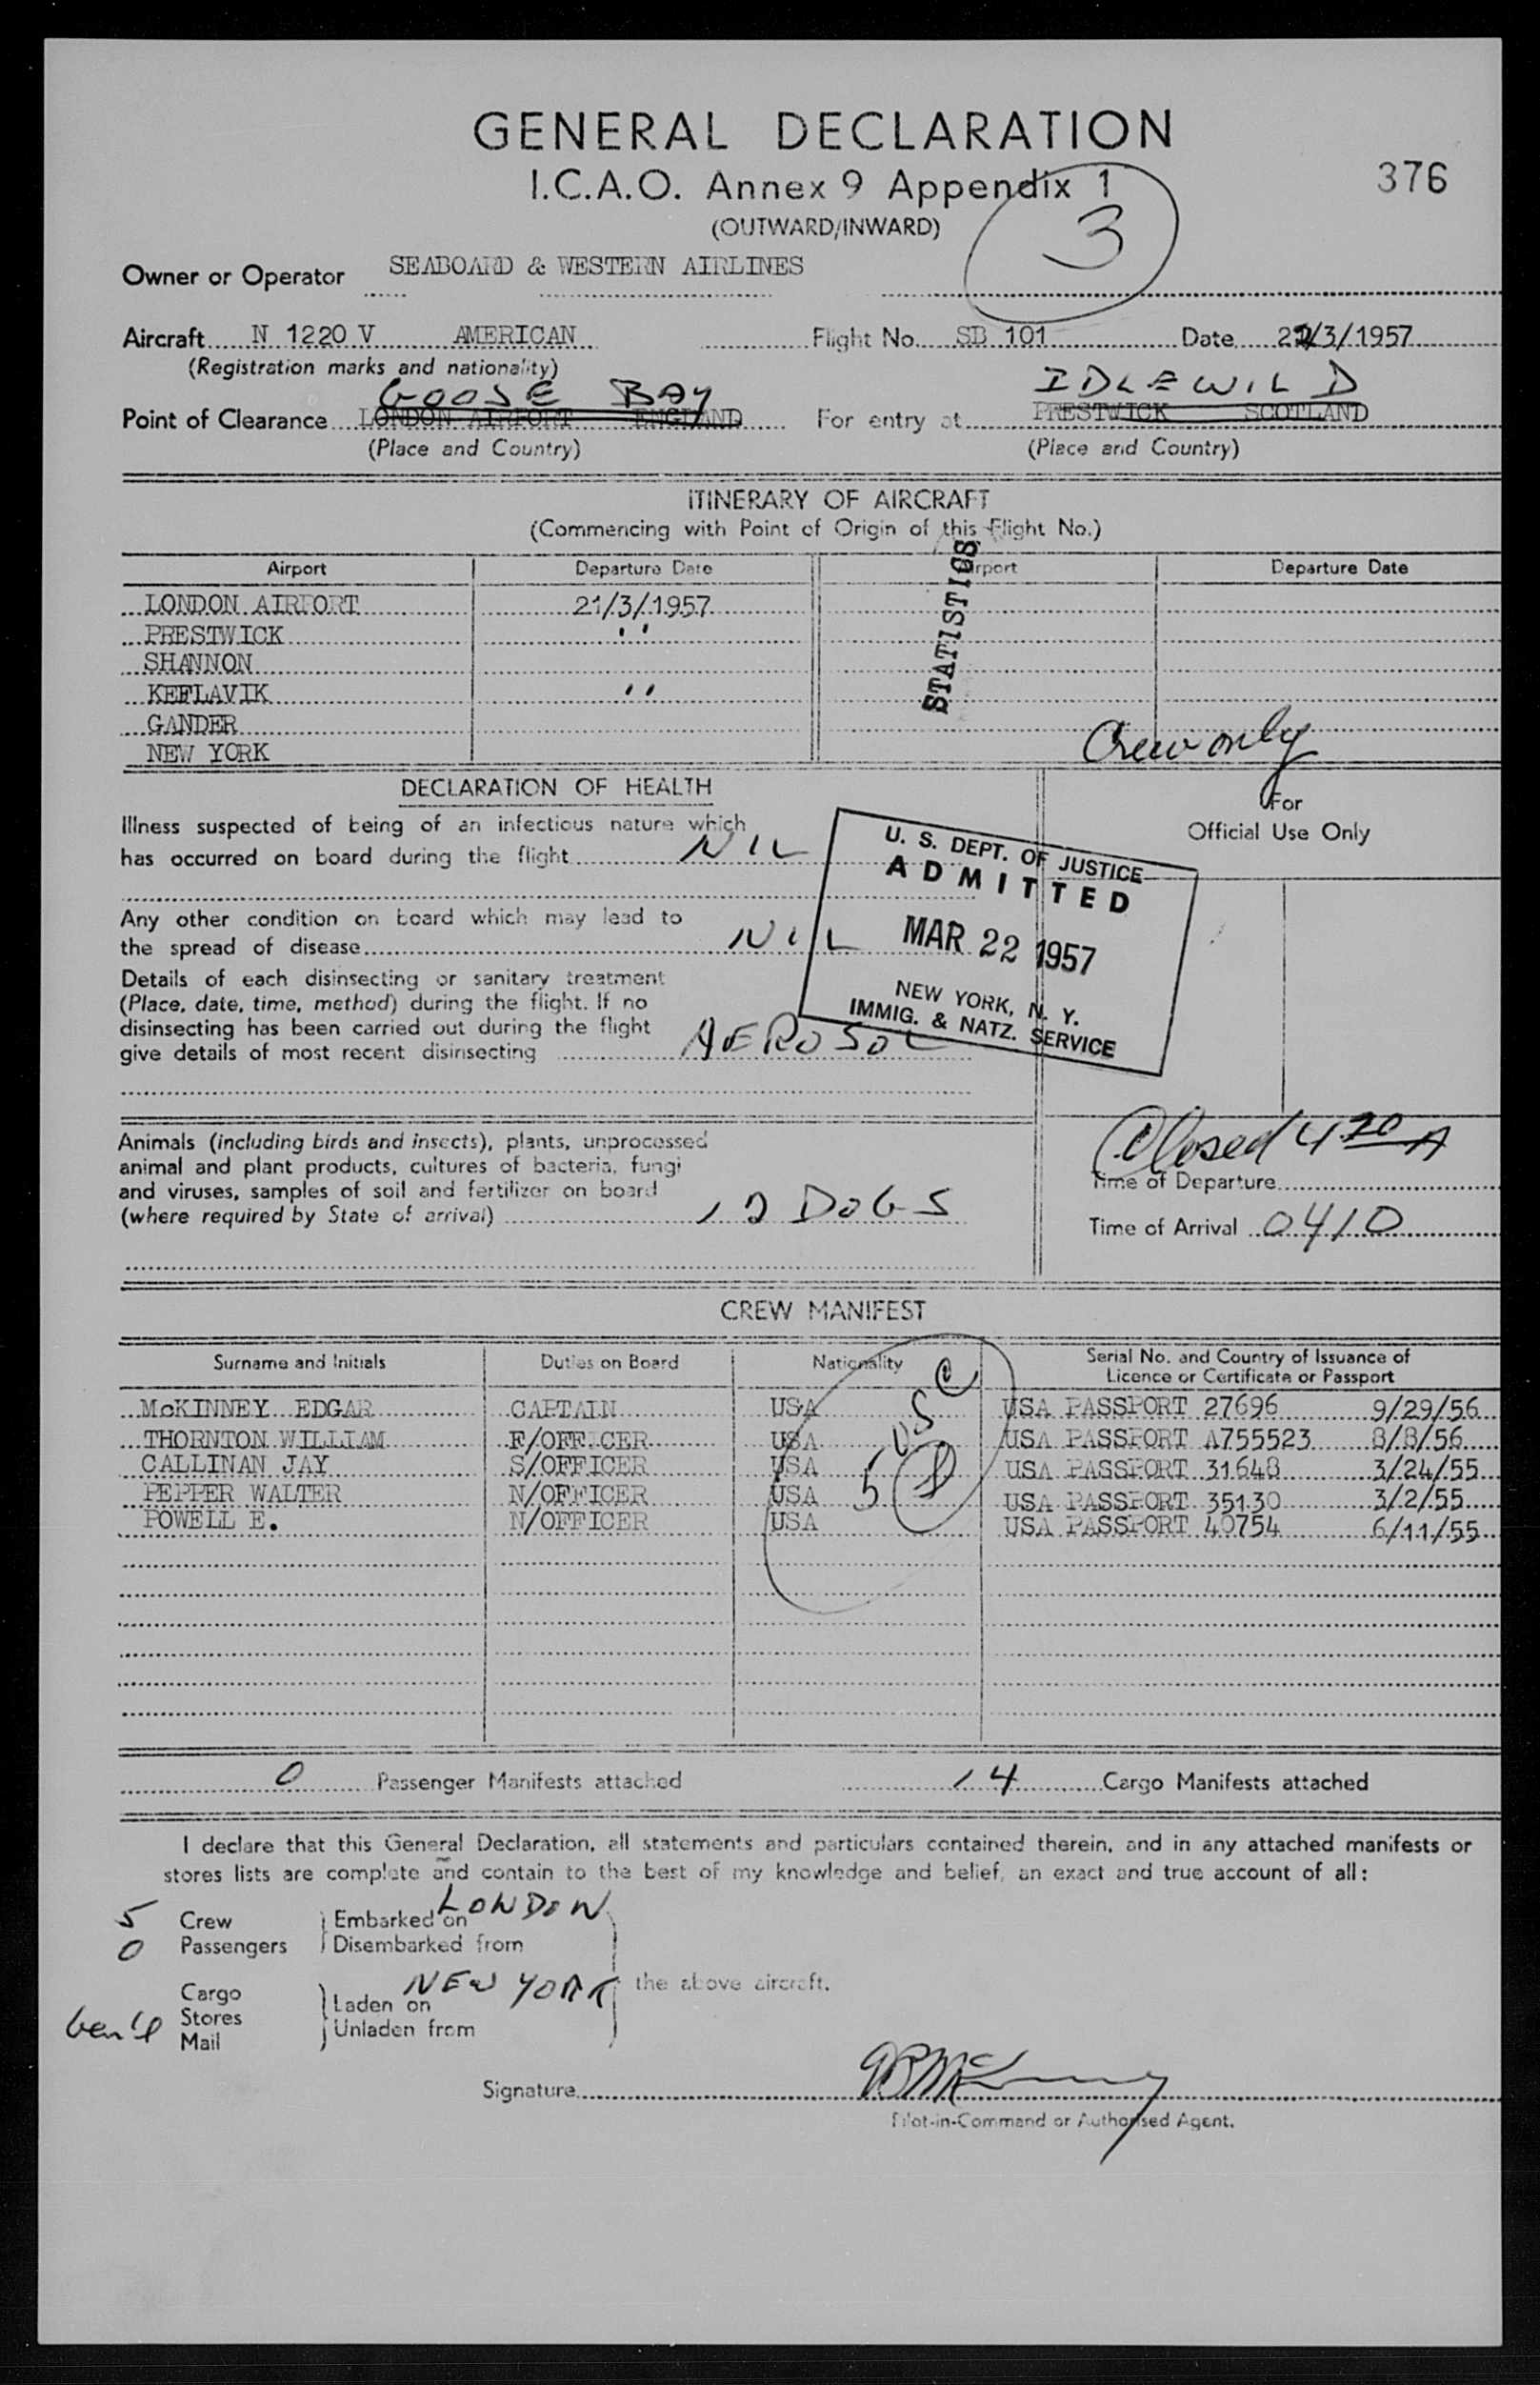 GENERAL DECLARATION
I.C.A.O. Annex 9 Appendix 1
376
(OUTWARD/INWARD)
3
Owner or Operator SEABOARD & WESTERN AIRLINES
Aircraft N 1220 V AMERICAN Flight No. SB 101 Date 22/3/1957
(Registration marks and nationality)
GOOSE BAY IDLEWILD
Point of Clearance LONDON AIRPORT ENGLAND For entry at PRESTWICK SCOTLAND
(Place and Country) (Place and Country)
ITINERARY OF AIRCRAFT
(Commencing with Point of Origin of this Flight No.)
Airport Departure Date Airport Departure Date
STATISTICS
LONDON AIRPORT 21/3/1957
PRESTWICK ''
SHANNON
KEFLAVIK ''
GANDER
NEW YORK
Crew only
DECLARATION OF HEALTH
For
Official Use Only
Illness suspected of being of an infectious nature which
has occurred on board during the flight NIL
U. S. DEPT. OF JUSTICE
ADMITTED
MAR 22 1957
NEW YORK, N. Y.
IMMIG. & NATZ. SERVICE
Any other condition on board which may lead to
the spread of disease NIL
Details of each disinsecting or sanitary treatment
(Place, date, time, method) during the flight. If no
disinsecting has been carried out during the flight
give details of most recent disinsecting AEROSOL
Animals (including birds and insects), plants, unprocessed
animal and plant products, cultures of bacteria, fungi
and viruses, samples of soil and fertilizer on board
(where required by State of arrival) 12 DOGS
Closed 4 20 A
Time of Departure
Time of Arrival 0410
CREW MANIFEST
Surname and Initials Duties on Board Nationality Serial No. and Country of Issuance of
Licence or Certificate or Passport
McKINNEY EDGAR CAPTAIN USA USA PASSPORT 27696 9/29/56
THORNTON WILLIAM F/OFFICER USA USA PASSPORT A755523 8/8/56
CALLINAN JAY S/OFFICER USA USA PASSPORT 31648 3/24/55
PEPPER WALTER N/OFFICER USA USA PASSPORT 35130 3/2/55
POWELL E. N/OFFICER USA USA PASSPORT 40754 6/11/55
5 USC
0 Passenger Manifests attached 14 Cargo Manifests attached
I declare that this General Declaration, all statements and particulars contained therein, and in any attached manifests or
stores lists are complete and contain to the best of my knowledge and belief, an exact and true account of all:
5 Crew Embarked on LONDON
0 Passengers Disembarked from
Cargo NEW YORK the above aircraft.
Stores Laden on
Mail Unladen from
Signature
Pilot-in-Command or Authorised Agent.